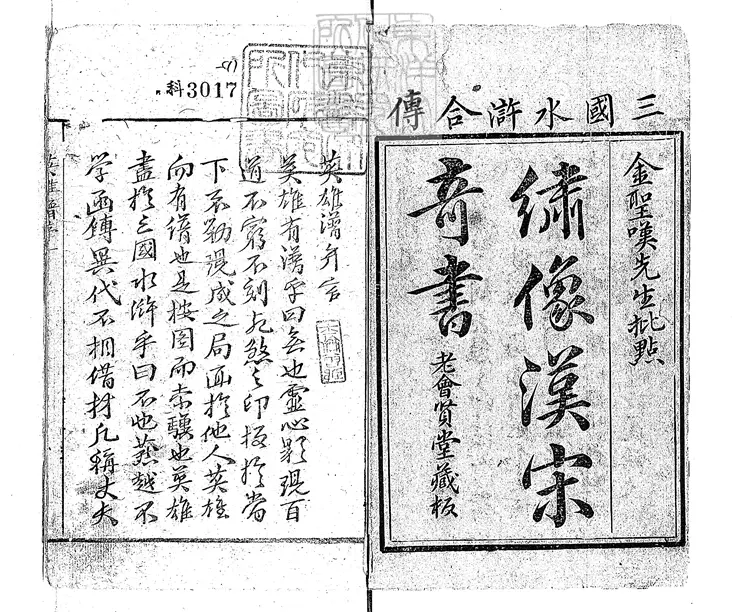 三國水滸合傳
金聖嘆先生批點
繡像漢宋
奇書
老會賢堂藏板
科3017
英雄譜弁言
英雄有譜乎曰無也靈心影現百
道不窮不刻死煞之印板於當
下不勒現成之局面於他人英雄
而有譜也是按圖而索驥也英雄
盡於三國水滸乎曰不也燕越不
學函傅異代不相借材凡稱丈夫